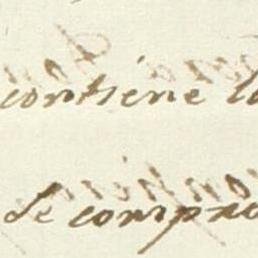 contiene la
de compro